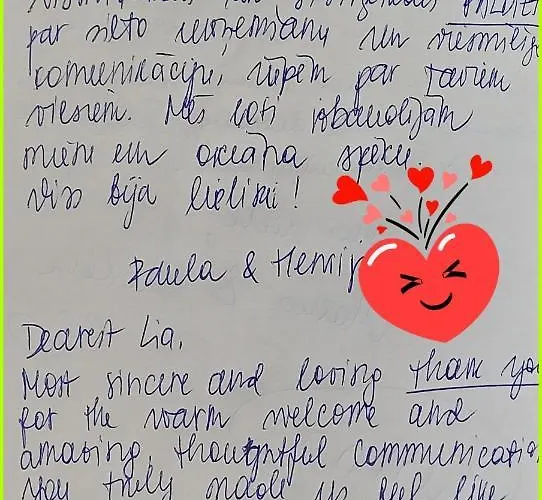 par silto uzņemšanu un viesmilīgo
komunikāciju, rūpēm par saviem
viesiem. Mēs ļoti izbaudījām
mieru un okeāna spēku.
viss bija lieliski!
Paula & Henrij
Dearest Lia,
Most sincere and loving thank you
for the warm welcome and
amazing, thoughtful communicatio
you truly made us feel like